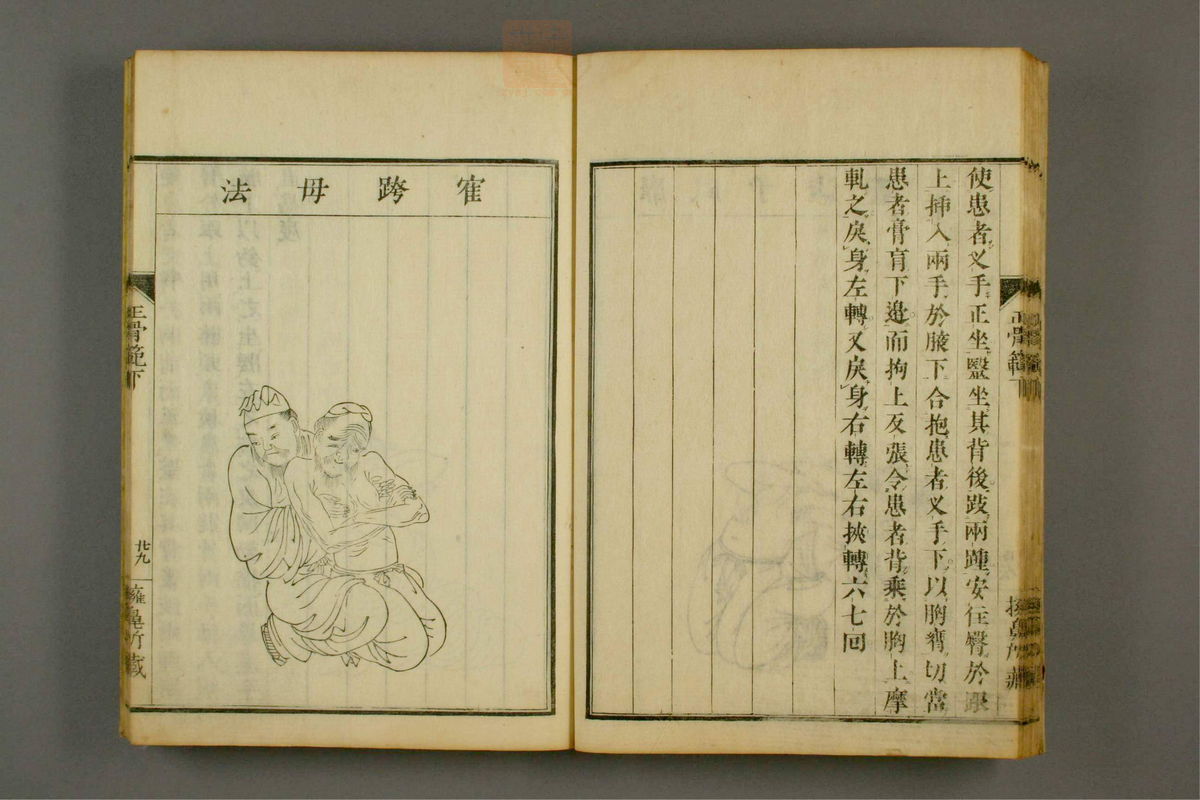 使患者叉手正坐毉坐其背後跂兩踵安住臀於跟
上揷入兩手於腋下合抱患者叉手下以胸膺切當
患者膏肓下邉而拘上反張令患者背乘於胸上摩
軋之戾身左轉又戾身右轉左右挾轉六七回
正骨範下
寉跨毋法
正骨範下
廿九